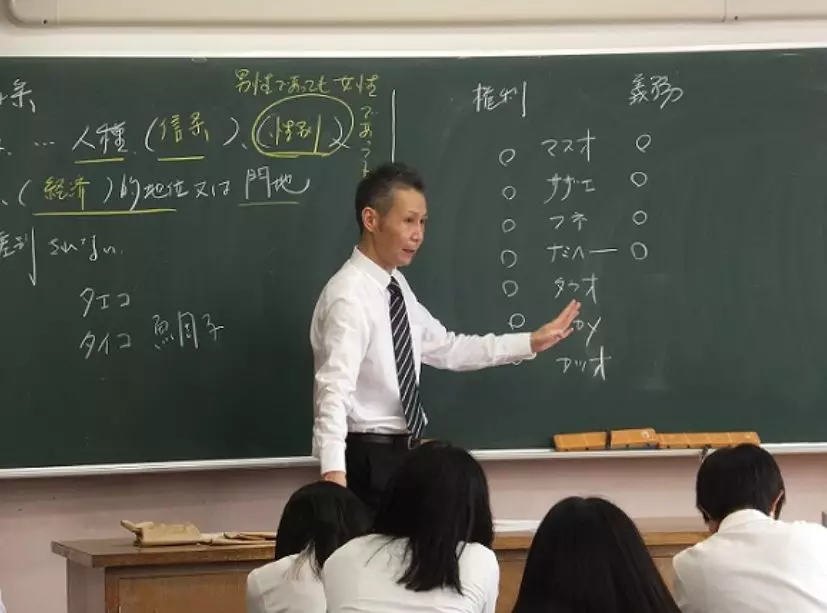 男性であっても女性
であっ
条
… 人種、(信条)、(性別)、
、(経済)的地位又は 門地
差別されない
タエコ
タイコ
権利 義務
○ マスオ ○
○ サザエ ○
○ フネ ○
○ ナミヘー ○
○ タラオ
○
カツオ